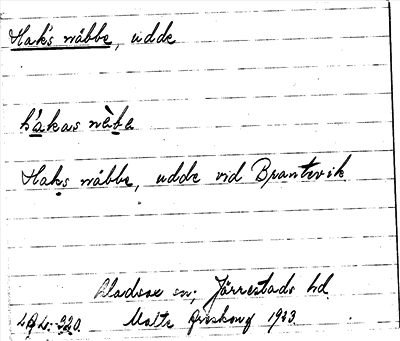 Hak's näbbe, udde
håkas nàbe
Haks näbbe, udde vid Brantevik
Gladsax sn; Järrestads hd.
LAL: 320. Malte 1923.